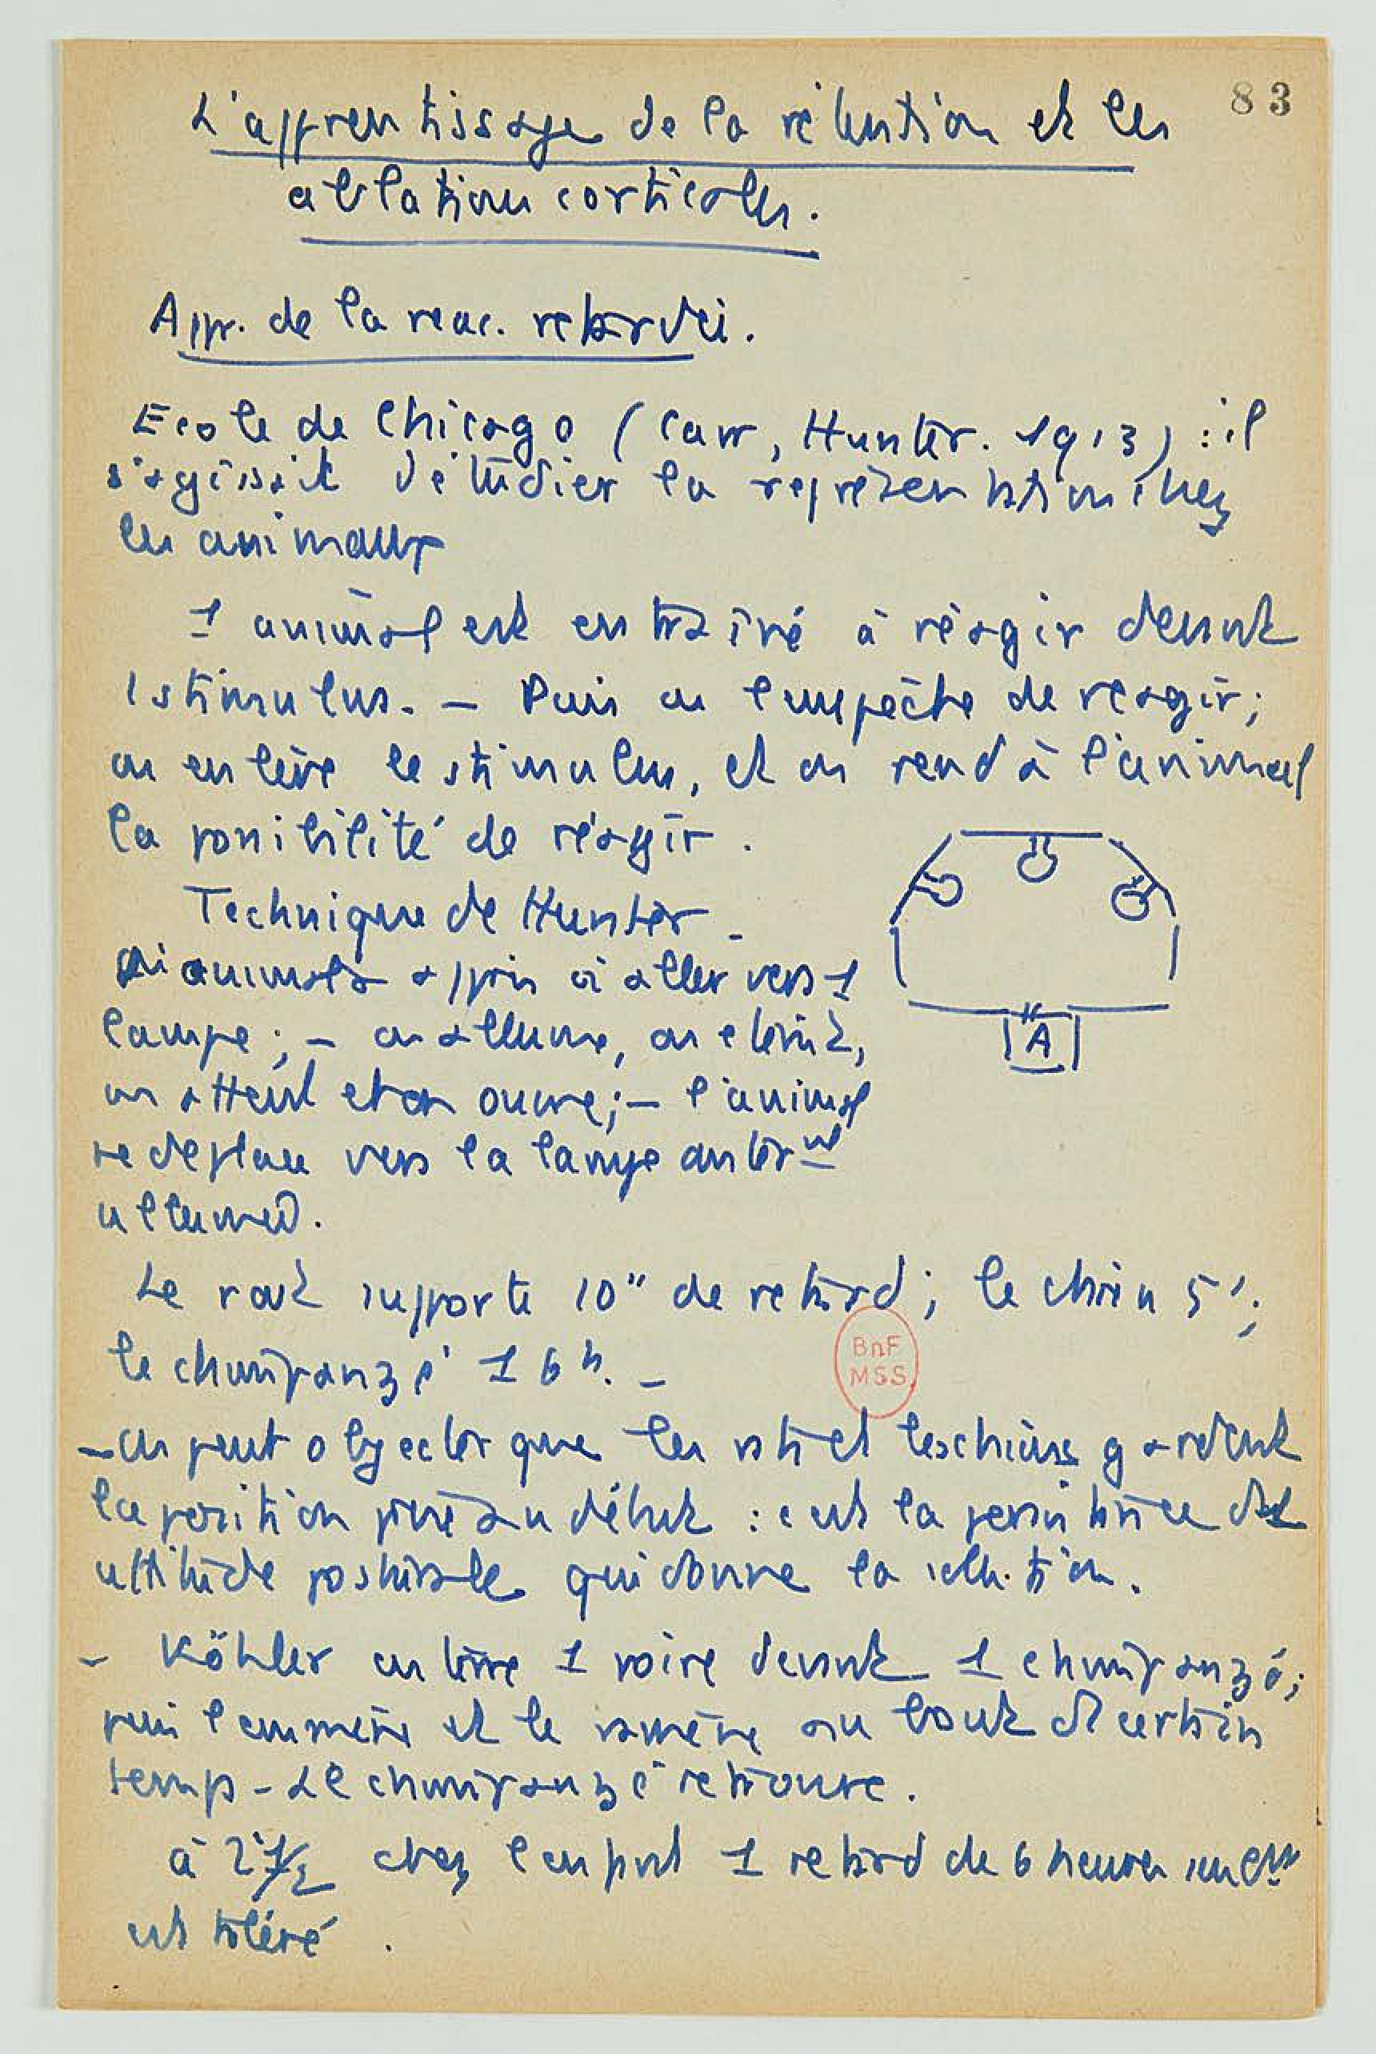 83
L'apprentissage de la rétention et les
ablations corticales.
App. de la reac. retardée.
Ecole de Chicago (Carr, Hunter. 1913) : il
s'agissait d'étudier la représentation chez
les animaux
1 animal est entraîné à réagir devant
1 stimulus. — Puis on l'empêche de réagir;
on enlève le stimulus, et on rend à l'animal
la possibilité de réagir.
Technique de Hunter —
animal a appris à aller vers 1
lampe; — on allume, on éteint,
on attend et on ouvre; — l'animal
se déplace vers la lampe antér^nt
allumée.
A
Le rat supporte 10" de retard; le chien 5';
le chimpanzé 16h. —
BnF
MSS
— on peut objecter que les rats et les chiens gardent
la position prise au début : c'est la persistance de l'
attitude posturale qui donne la solution.
- Köhler enterre 1 poire devant 1 chimpanzé;
puis l'emmène et le ramène au bout d'1 certain
temps - Le chimpanzé retrouve.
à 2 1/2 chez l'enfant 1 retard de 6 heures seulem^t
est toléré.